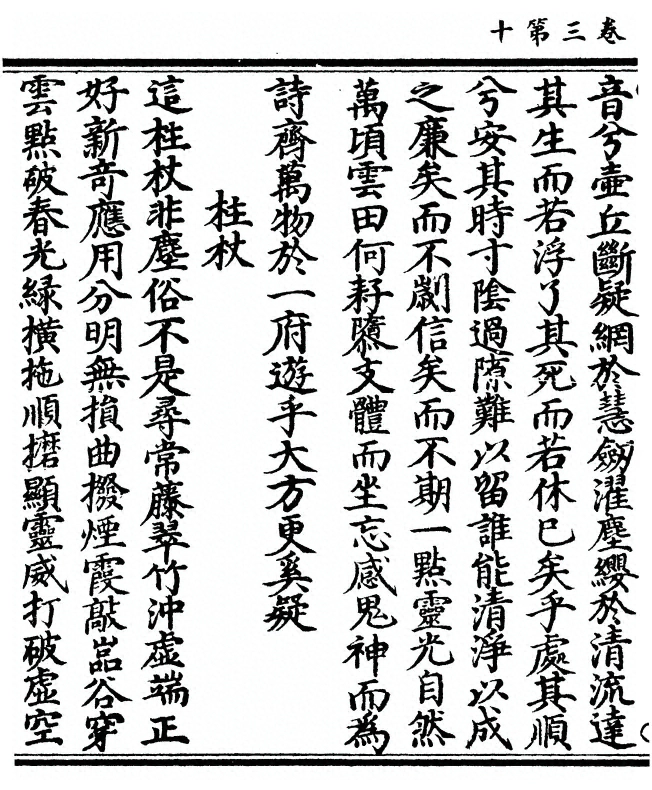 卷三第十
音兮壺丘斷疑網於慧劒濯塵纓於清流達
其生而若浮了其死而若休巳矣乎處其順
兮安其時寸陰過隙難以留誰能清淨以成
之廉矣而不劌信矣而不期一點靈光自然
萬頃雲田何耔隳支體而坐忘感鬼神而為
詩齊萬物於一府遊乎大方更奚疑
柱杖
這柱杖非塵俗不是尋常藤翠竹沖虛端正
好新奇應用分明無損曲撥煙霞敲嵒谷穿
雲點破春光綠橫拖順擵顯靈威打破虛空